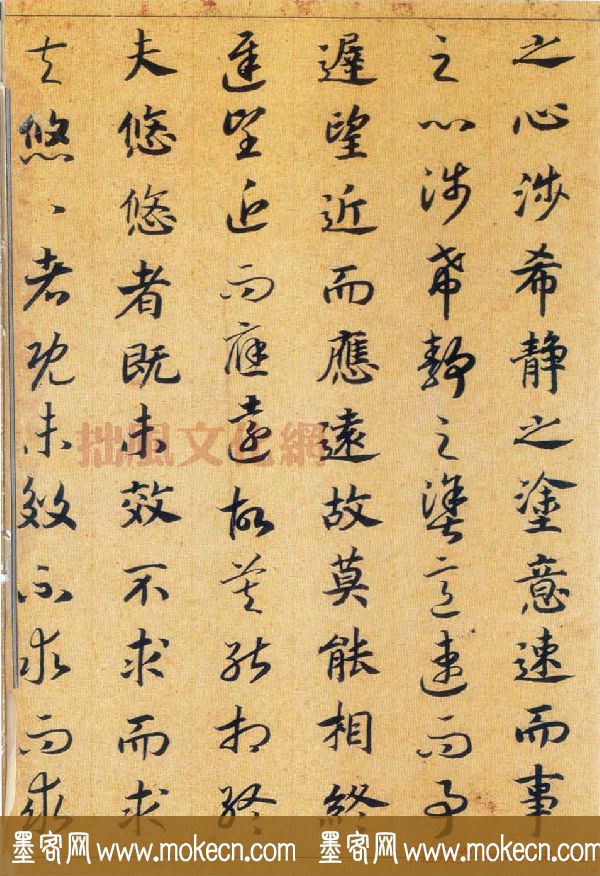 之心涉希静之塗意速而事
之心涉希静之塗意速而事
遲望近而應遠故莫能相終
遲望近而應遠故莫能相終
夫悠悠者既未效不求而求
夫悠〻者既未效不求而求
拙風文化網
墨客网 www.mokecn.com 墨客网 www.mokecn.com 墨客网 www.mokecn.com